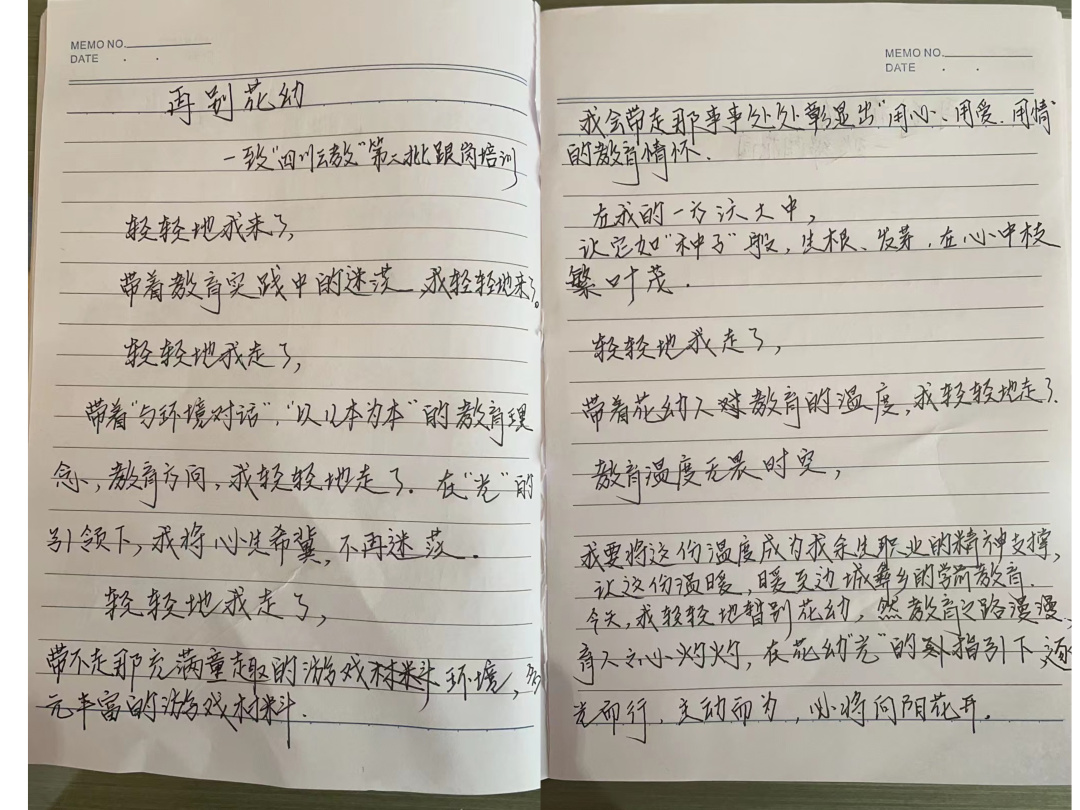 MEMO NO.
DATE . .
再别花幼
—致“四川云教”第二批跟岗培训
轻轻地我来了,
带着教育实践中的迷茫,我轻轻地来了。
轻轻地我走了,
带着“与环境对话”,“以儿本为本”的教育理
念,教育方向,我轻轻地走了.在“光”的
引领下,我将心生希冀,不再迷茫.
轻轻地我走了,
带不走那充满童趣的游戏环境,多
元丰富的游戏材料.
MEMO NO.
DATE . .
我会带走那事事处处彰显出“用心、用爱、用情”
的教育情怀.
在我的一方沃土中,
让它如“种子”般,生根、发芽,在心中枝
繁叶茂.
轻轻地我走了,
带着花幼人对教育的温度,我轻轻地走了.
教育温度无畏时空,
我要将这份温度成为我余生职业的精神支撑,
让这份温暖,暖至边城彝乡的学前教育.
今天,我轻轻地暂别花幼,然教育之路漫漫,
育人之心灼灼,在花幼“光”的指引下,逐
光而行,主动而为,必将向阳花开。